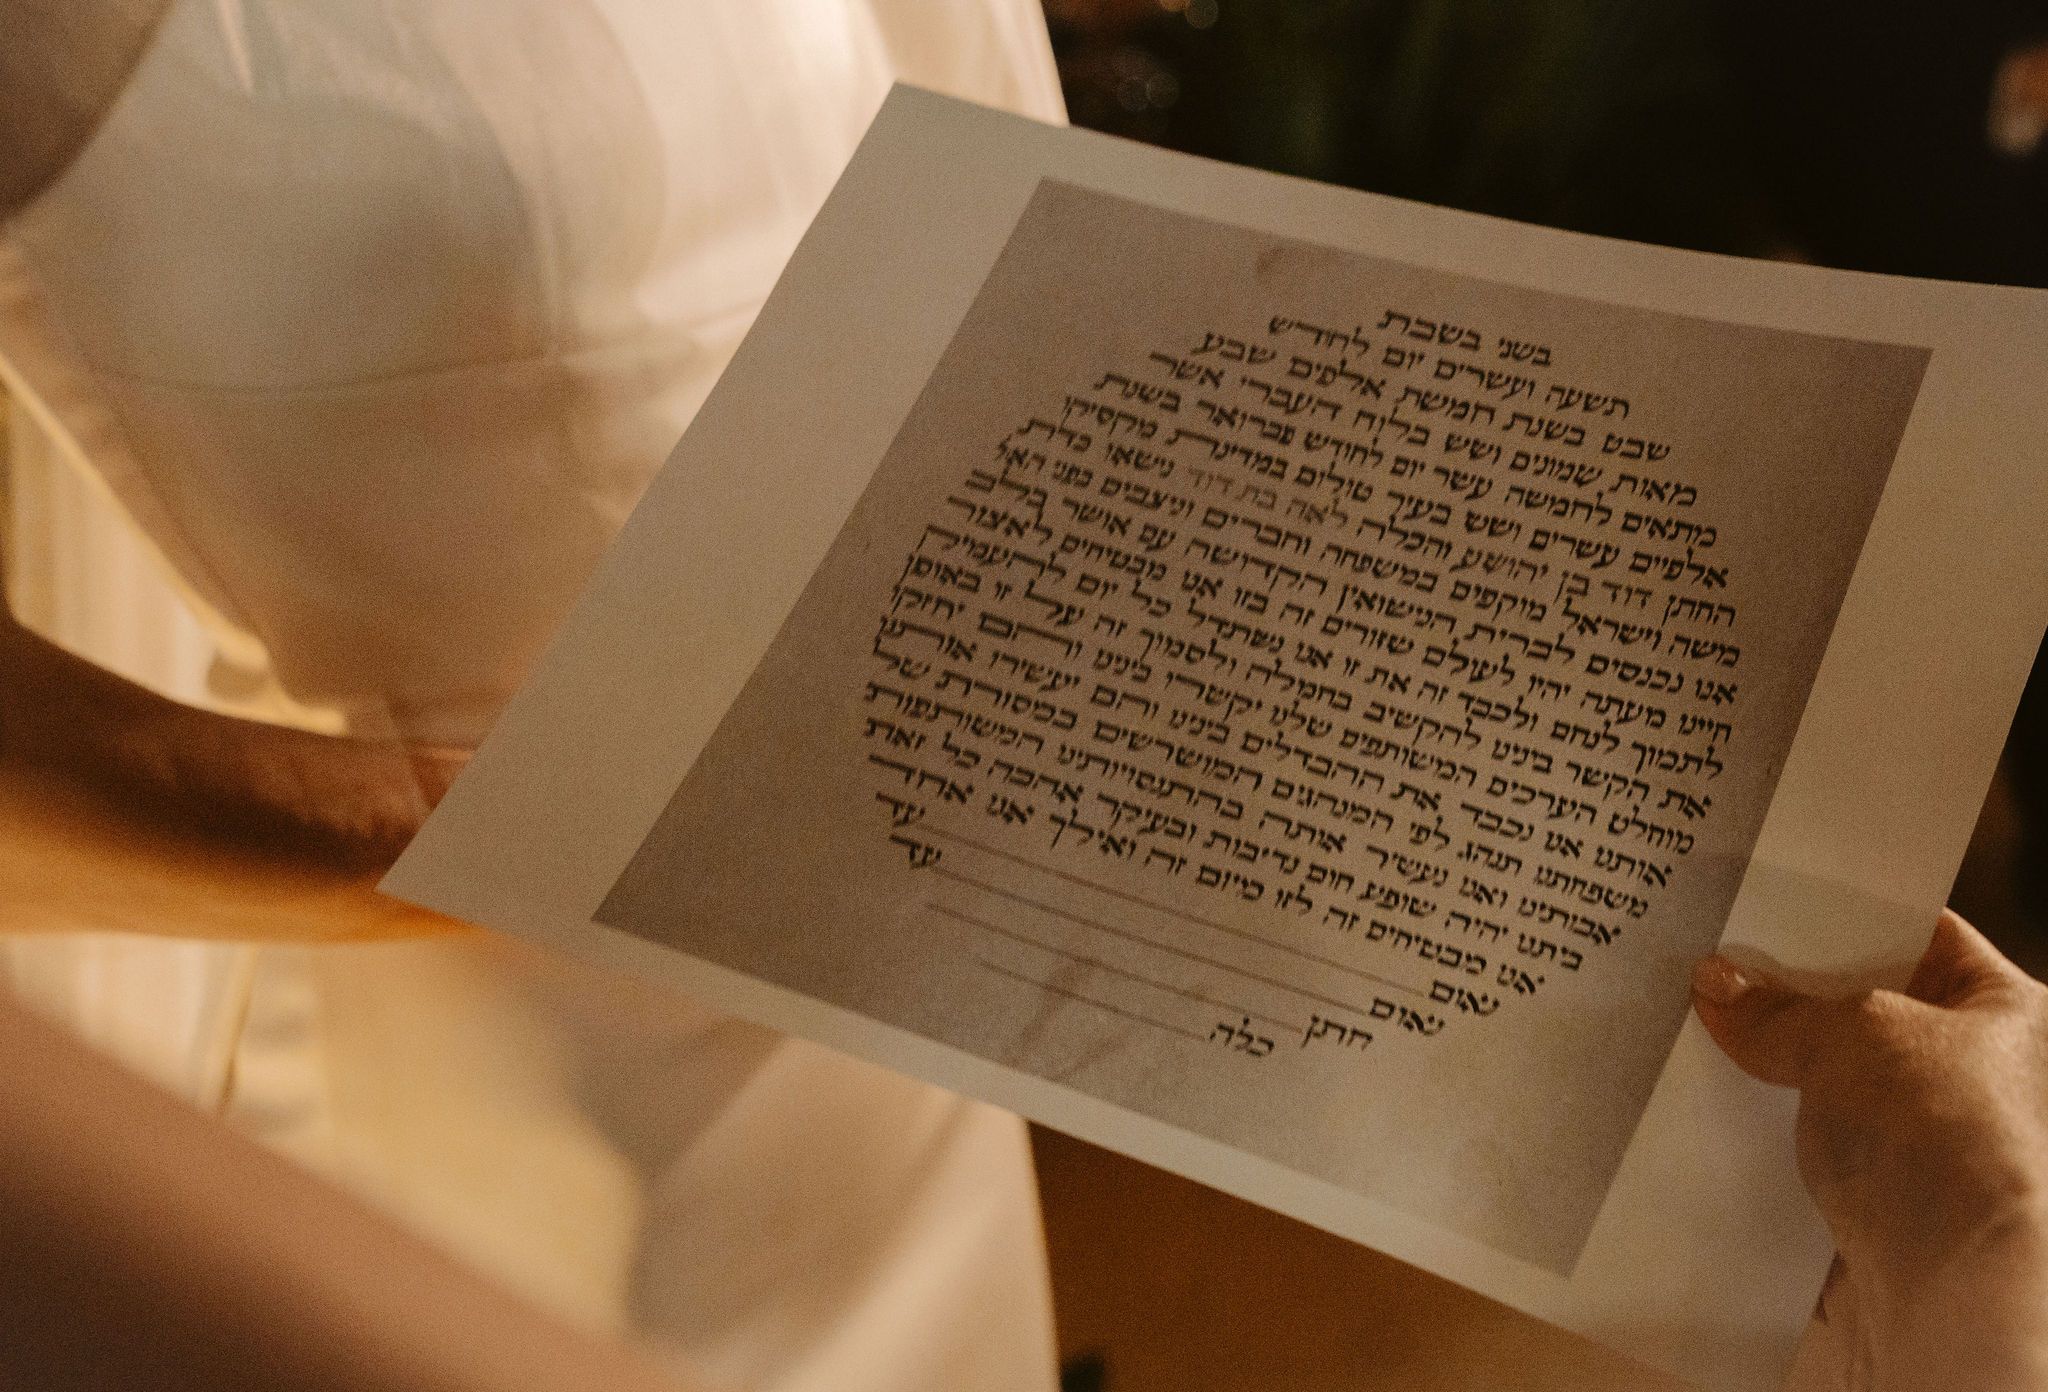 בשני בשבת
תשעה ועשרים יום לחודש
שבט בשנת חמשת אלפים שבע
מאות שמונים ושש בלוח העברי אשר
מתאים לחמשה עשר יום לחודש פברואר בשנת
אלפיים עשרים ושש בעיר טולום במדינת מקסיקו
החתן דוד בן יהושע והכלה לאה בת דוד נישאו כדת
משה וישראל מוקפים במשפחה וחברים וניצבים בפני האל
אנו נכנסים לברית הנישואין הקדושה עם אושר בלב
חיינו מעתה יהיו לעולם שזורים זה בזו אנו מבטיחים לאצור
לתמוך לנחם ולכבד זה את זו אנו נשתדל כל יום להעמיק
את הקשר בינינו להקשיב בחמלה ולסמוך זה על זו באופן
מוחלט הערכים המשותפים שלנו יקשרו בינינו והם יחזקו
אותנו אנו נכבד את ההבדלים בינינו והם יעשירו אותנו
משפחתנו תנהג לפי המנהגים המושרשים במסורת של
אבותינו ואנו נעשיר אותה בהתנסויותינו המשותפות
ביתנו יהיה שופע חום נדיבות ובעיקר אהבה כל זאת
אנו מבטיחים זה לזו מיום זה ואילך אנו אחד
נאום עד
נאום עד
חתן
כלה